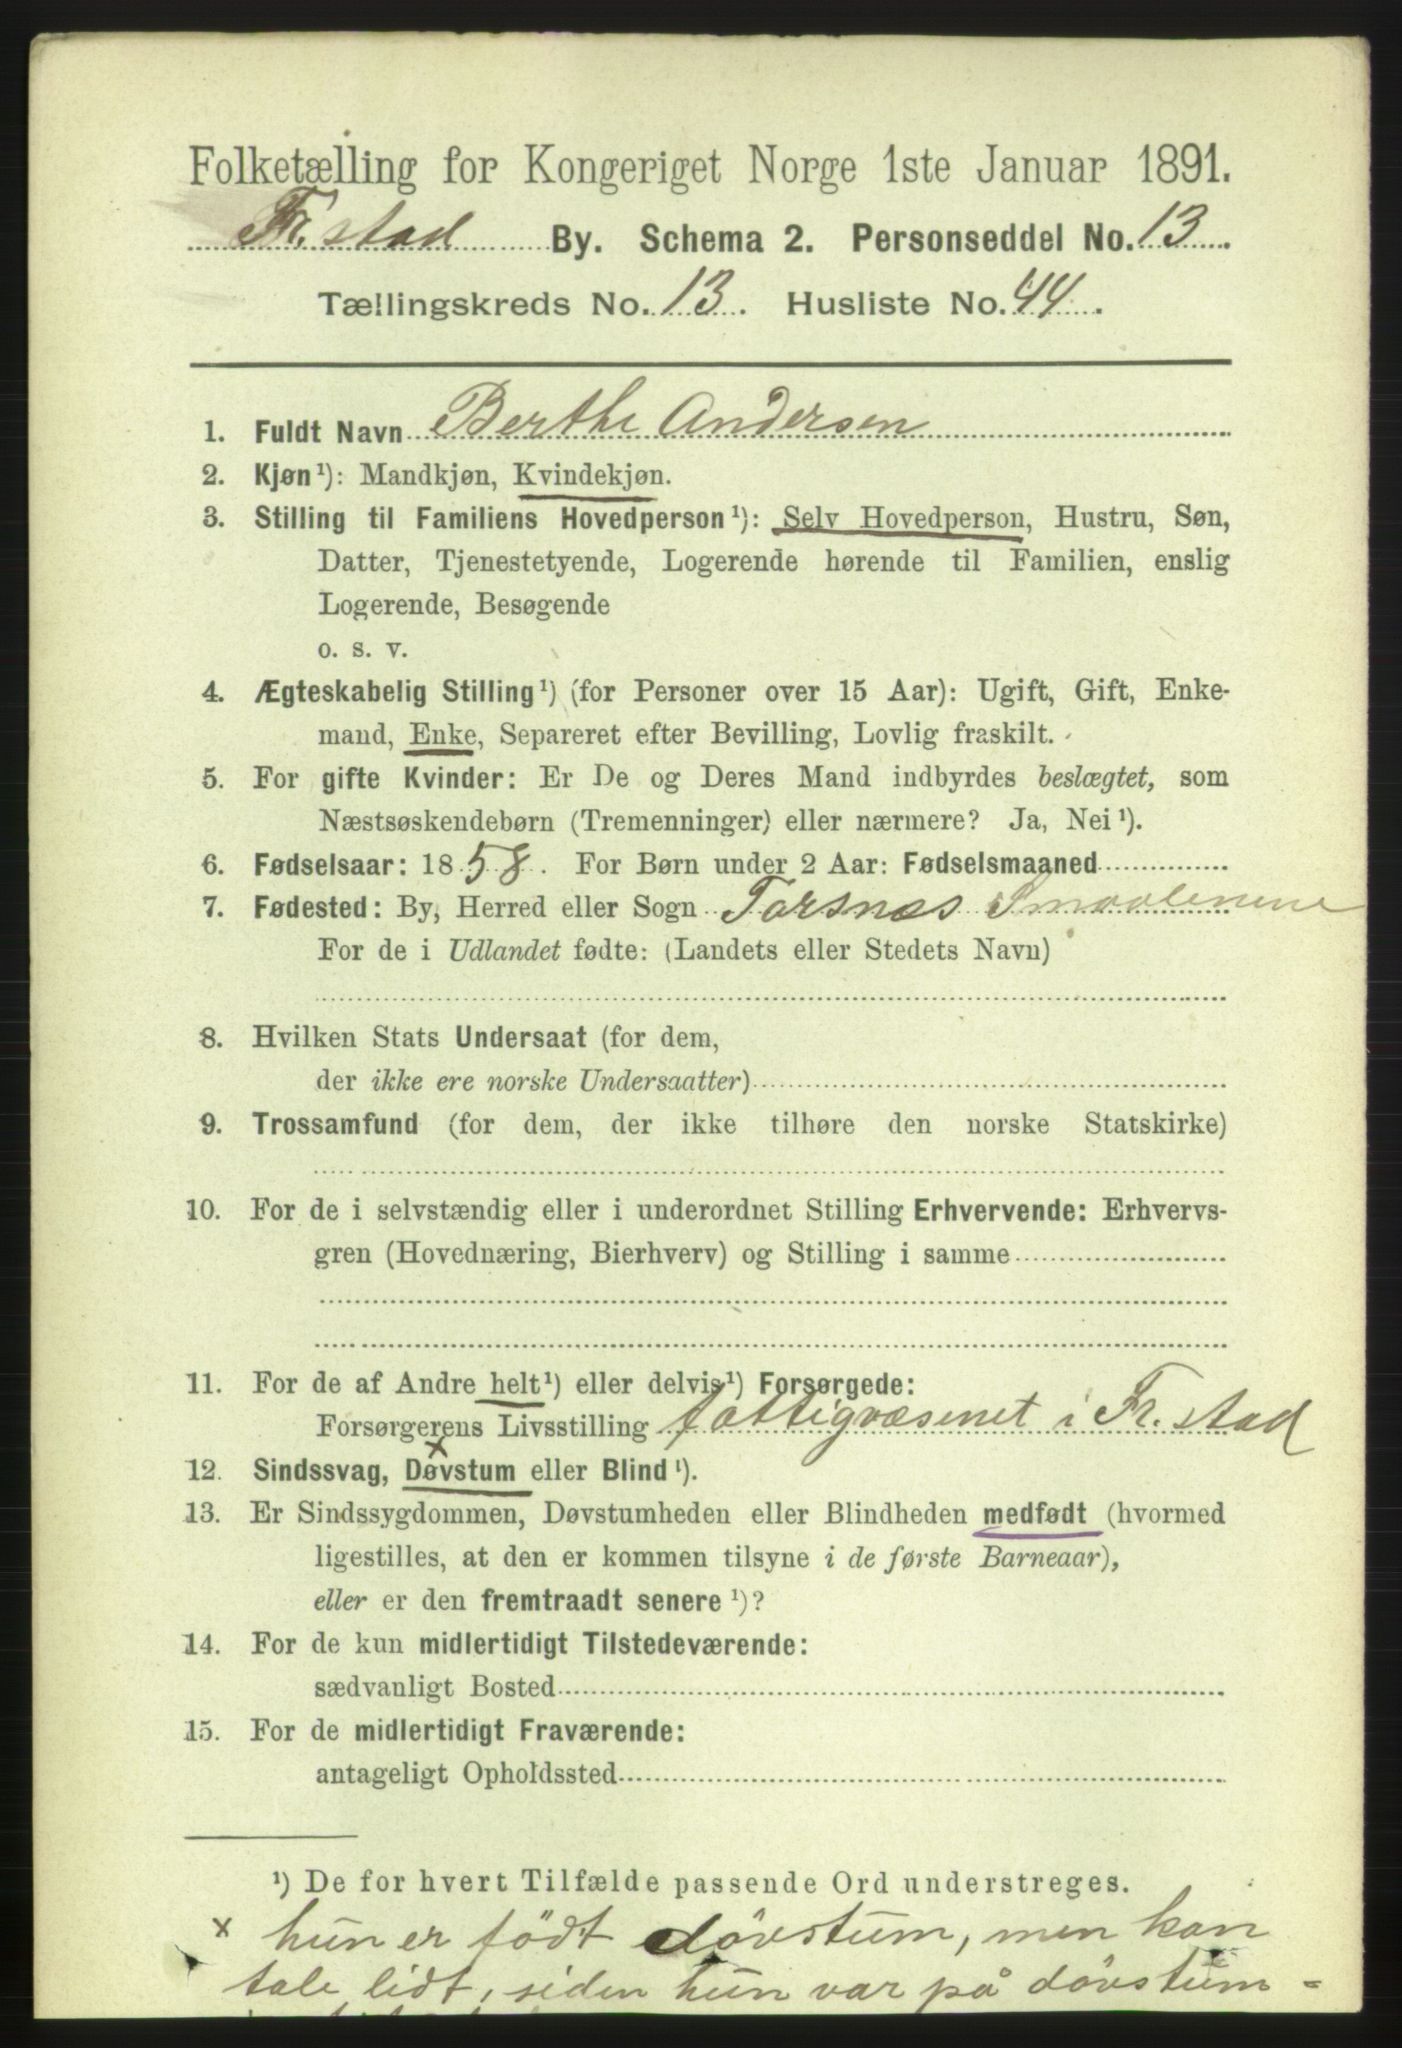 Folketælling for Kongeriget Norge 1ste Januar 1891.
Fr. stad By. Schema 2. Personseddel No. 13.
Tællingskreds No. 13. Husliste No. 44.
1. Fuldt Navn Berthe Andersen
2. Kjøn¹): Mandkjøn, Kvindekjøn.
3. Stilling til Familiens Hovedperson¹): Selv Hovedperson, Hustru, Søn,
Datter, Tjenestetyende, Logerende hørende til Familien, enslig
Logerende, Besøgende
o. s. v.
4. Ægteskabelig Stilling¹) (for Personer over 15 Aar): Ugift, Gift, Enke-
mand, Enke, Separeret efter Bevilling, Lovlig fraskilt.
5. For gifte Kvinder: Er De og Deres Mand indbyrdes beslægtet, som
Næstsøskendebørn (Tremenninger) eller nærmere? Ja, Nei¹).
6. Fødselsaar: 1858. For Børn under 2 Aar: Fødselsmaaned
7. Fødested: By, Herred eller Sogn Torsnæs Smaalenene
For de i Udlandet fødte: (Landets eller Stedets Navn)
8. Hvilken Stats Undersaat (for dem,
der ikke ere norske Undersaatter)
9. Trossamfund (for dem, der ikke tilhøre den norske Statskirke)
10. For de i selvstændig eller i underordnet Stilling Erhvervende: Erhvervs-
gren (Hovednæring, Bierhverv) og Stilling i samme
11. For de af Andre helt¹) eller delvis¹) Forsørgede:
Forsørgerens Livsstilling fattigvæsenet i Fr. stad
12. Sindssvag, Døvstum x eller Blind¹).
13. Er Sindssygdommen, Døvstumheden eller Blindheden medfødt (hvormed
ligestilles, at den er kommen tilsyne i de første Barneaar),
eller er den fremtraadt senere¹)?
14. For de kun midlertidigt Tilstedeværende:
sædvanligt Bosted
15. For de midlertidigt Fraværende:
antageligt Opholdssted
¹) De for hvert Tilfælde passende Ord understreges.
x hun er födt dövstum, men kan
tale lidt, siden hun var på dövstum=